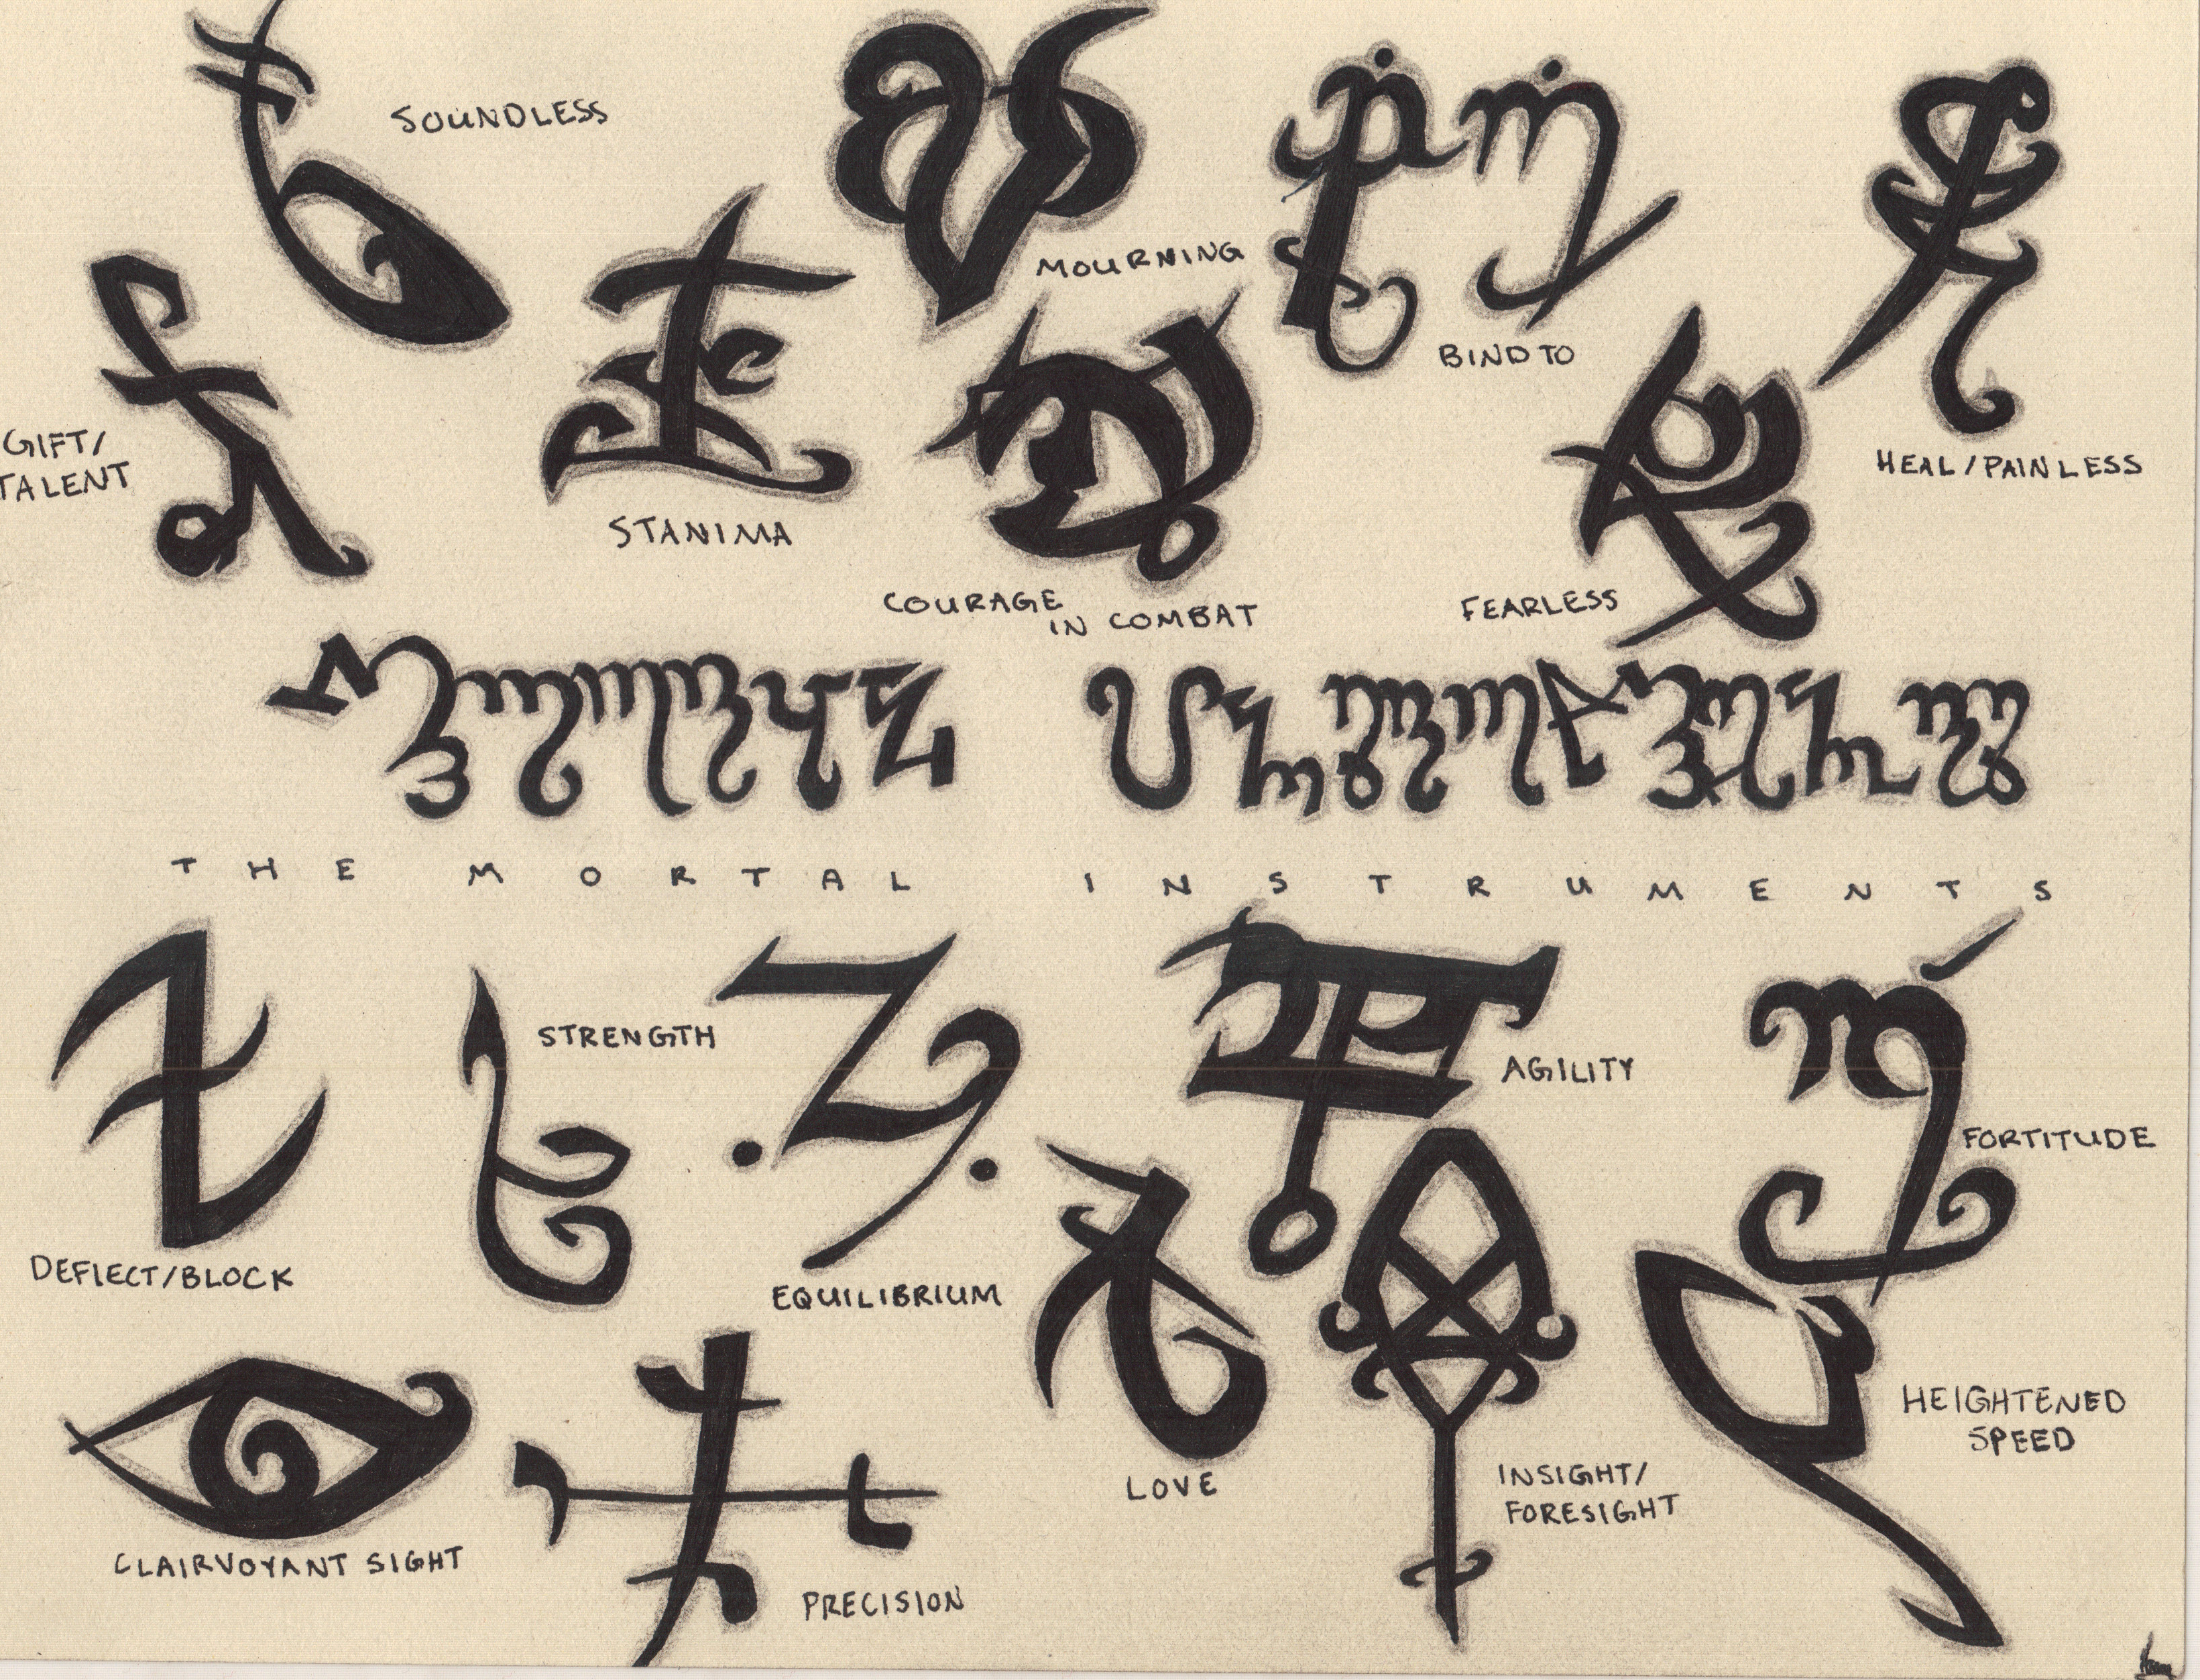 SOUNDLESS
MOURNING
BIND TO
HEAL/PAINLESS
GIFT/
TALENT
STANIMA
COURAGE
IN COMBAT
FEARLESS
THE MORTAL INSTRUMENTS
STRENGTH
AGILITY
FORTITUDE
DEFLECT/BLOCK
EQUILIBRIUM
HEIGHTENED
SPEED
LOVE
INSIGHT/
FORESIGHT
CLAIRVOYANT SIGHT
PRECISION